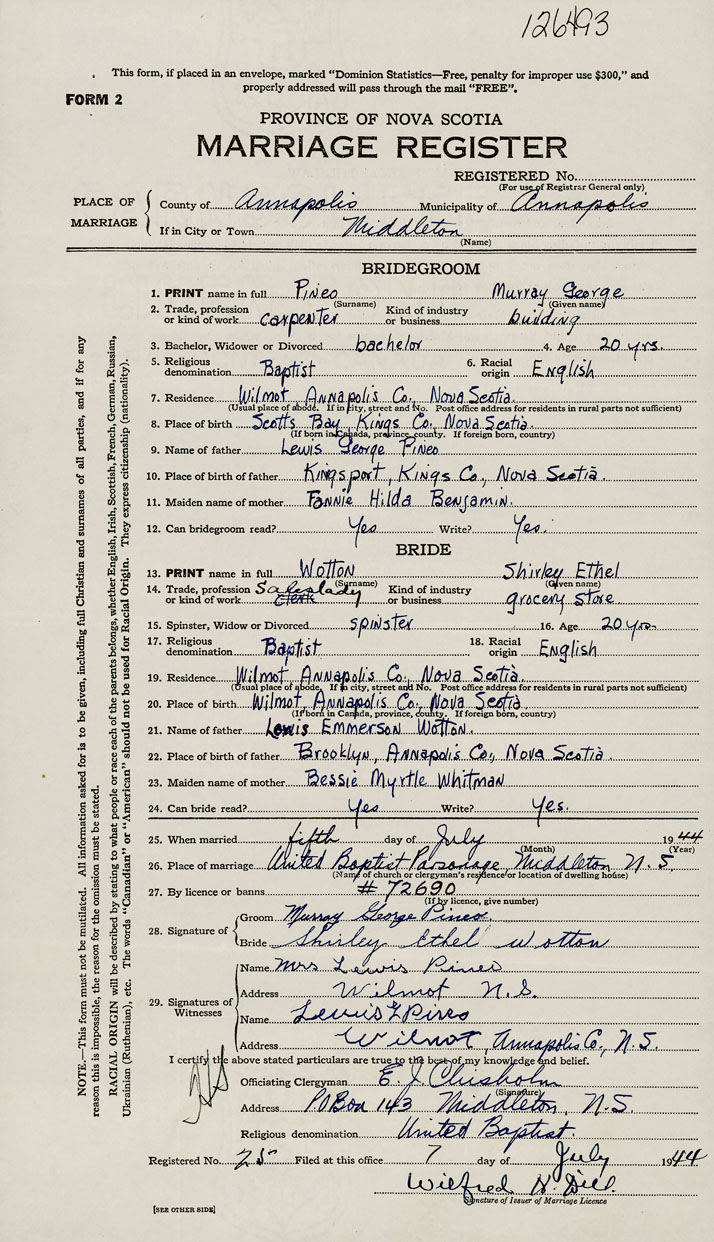 126493
This form, if placed in an envelope, marked "Dominion Statistics—Free, penalty for improper use $300," and
properly addressed will pass through the mail "FREE".
FORM 2
PROVINCE OF NOVA SCOTIA
MARRIAGE REGISTER
REGISTERED No.
(For use of Registrar General only)
PLACE OF MARRIAGE
County of Annapolis Municipality of Annapolis
If in City or Town Middleton
(Name)
BRIDEGROOM
1. PRINT name in full Pineo Murray George
(Surname) (Given name)
2. Trade, profession or kind of work carpenter Kind of industry or business building
3. Bachelor, Widower or Divorced bachelor 4. Age 20 yrs.
5. Religious denomination Baptist 6. Racial origin English
7. Residence Wilmot Annapolis Co., Nova Scotia.
(Usual place of abode. If in city, street and No. Post office address for residents in rural parts not sufficient)
8. Place of birth Scotts Bay, Kings Co., Nova Scotia.
(If born in Canada, province, county. If foreign born, country)
9. Name of father Lewis George Pineo
10. Place of birth of father Kingsport, Kings Co., Nova Scotia.
11. Maiden name of mother Fannie Hilda Benjamin.
12. Can bridegroom read? Yes Write? Yes.
BRIDE
13. PRINT name in full Wotton Shirley Ethel
(Surname) (Given name)
14. Trade, profession or kind of work Saleslady Clerk Kind of industry or business grocery store
15. Spinster, Widow or Divorced spinster 16. Age 20 yrs.
17. Religious denomination Baptist 18. Racial origin English
19. Residence Wilmot, Annapolis Co., Nova Scotia.
(Usual place of abode. If in city, street and No. Post office address for residents in rural parts not sufficient)
20. Place of birth Wilmot, Annapolis Co., Nova Scotia
(If born in Canada, province, county. If foreign born, country)
21. Name of father Lewis Emmerson Wotton.
22. Place of birth of father Brooklyn, Annapolis Co., Nova Scotia.
23. Maiden name of mother Bessie Myrtle Whitman
24. Can bride read? Yes Write? Yes.
25. When married fifth day of July 1944
(Month) (Year)
26. Place of marriage United Baptist Parsonage, Middleton N.S.
(Name of church or clergyman's residence or location of dwelling house)
27. By licence or banns # 72690
(If by licence, give number)
28. Signature of
Groom Murray George Pineo.
Bride Shirley Ethel Wotton
29. Signatures of Witnesses
Name Mrs Lewis Pineo
Address Wilmot N.S.
Name Lewis G Pineo
Address Wilmot, Annapolis Co., N.S.
I certify the above stated particulars are true to the best of my knowledge and belief.
Officiating Clergyman E. J. Chisholm
(Signature)
Address P.O Box 143 Middleton, N.S.
Religious denomination United Baptist.
Registered No. 25 Filed at this office 7 day of July 1944
Wilfred H. Dill
Signature of Issuer of Marriage Licence
[SEE OTHER SIDE]
NOTE.—This form must not be mutilated. All information asked for is to be given, including full Christian and surnames of all parties, and if for any
reason this is impossible, the reason for the omission must be stated.
RACIAL ORIGIN will be described by stating to what people or race each of the parents belongs, whether English, Irish, Scottish, French, German, Russian,
Ukrainian (Ruthenian), etc. The words "Canadian" or "American" should not be used for Racial Origin. They express citizenship (nationality).